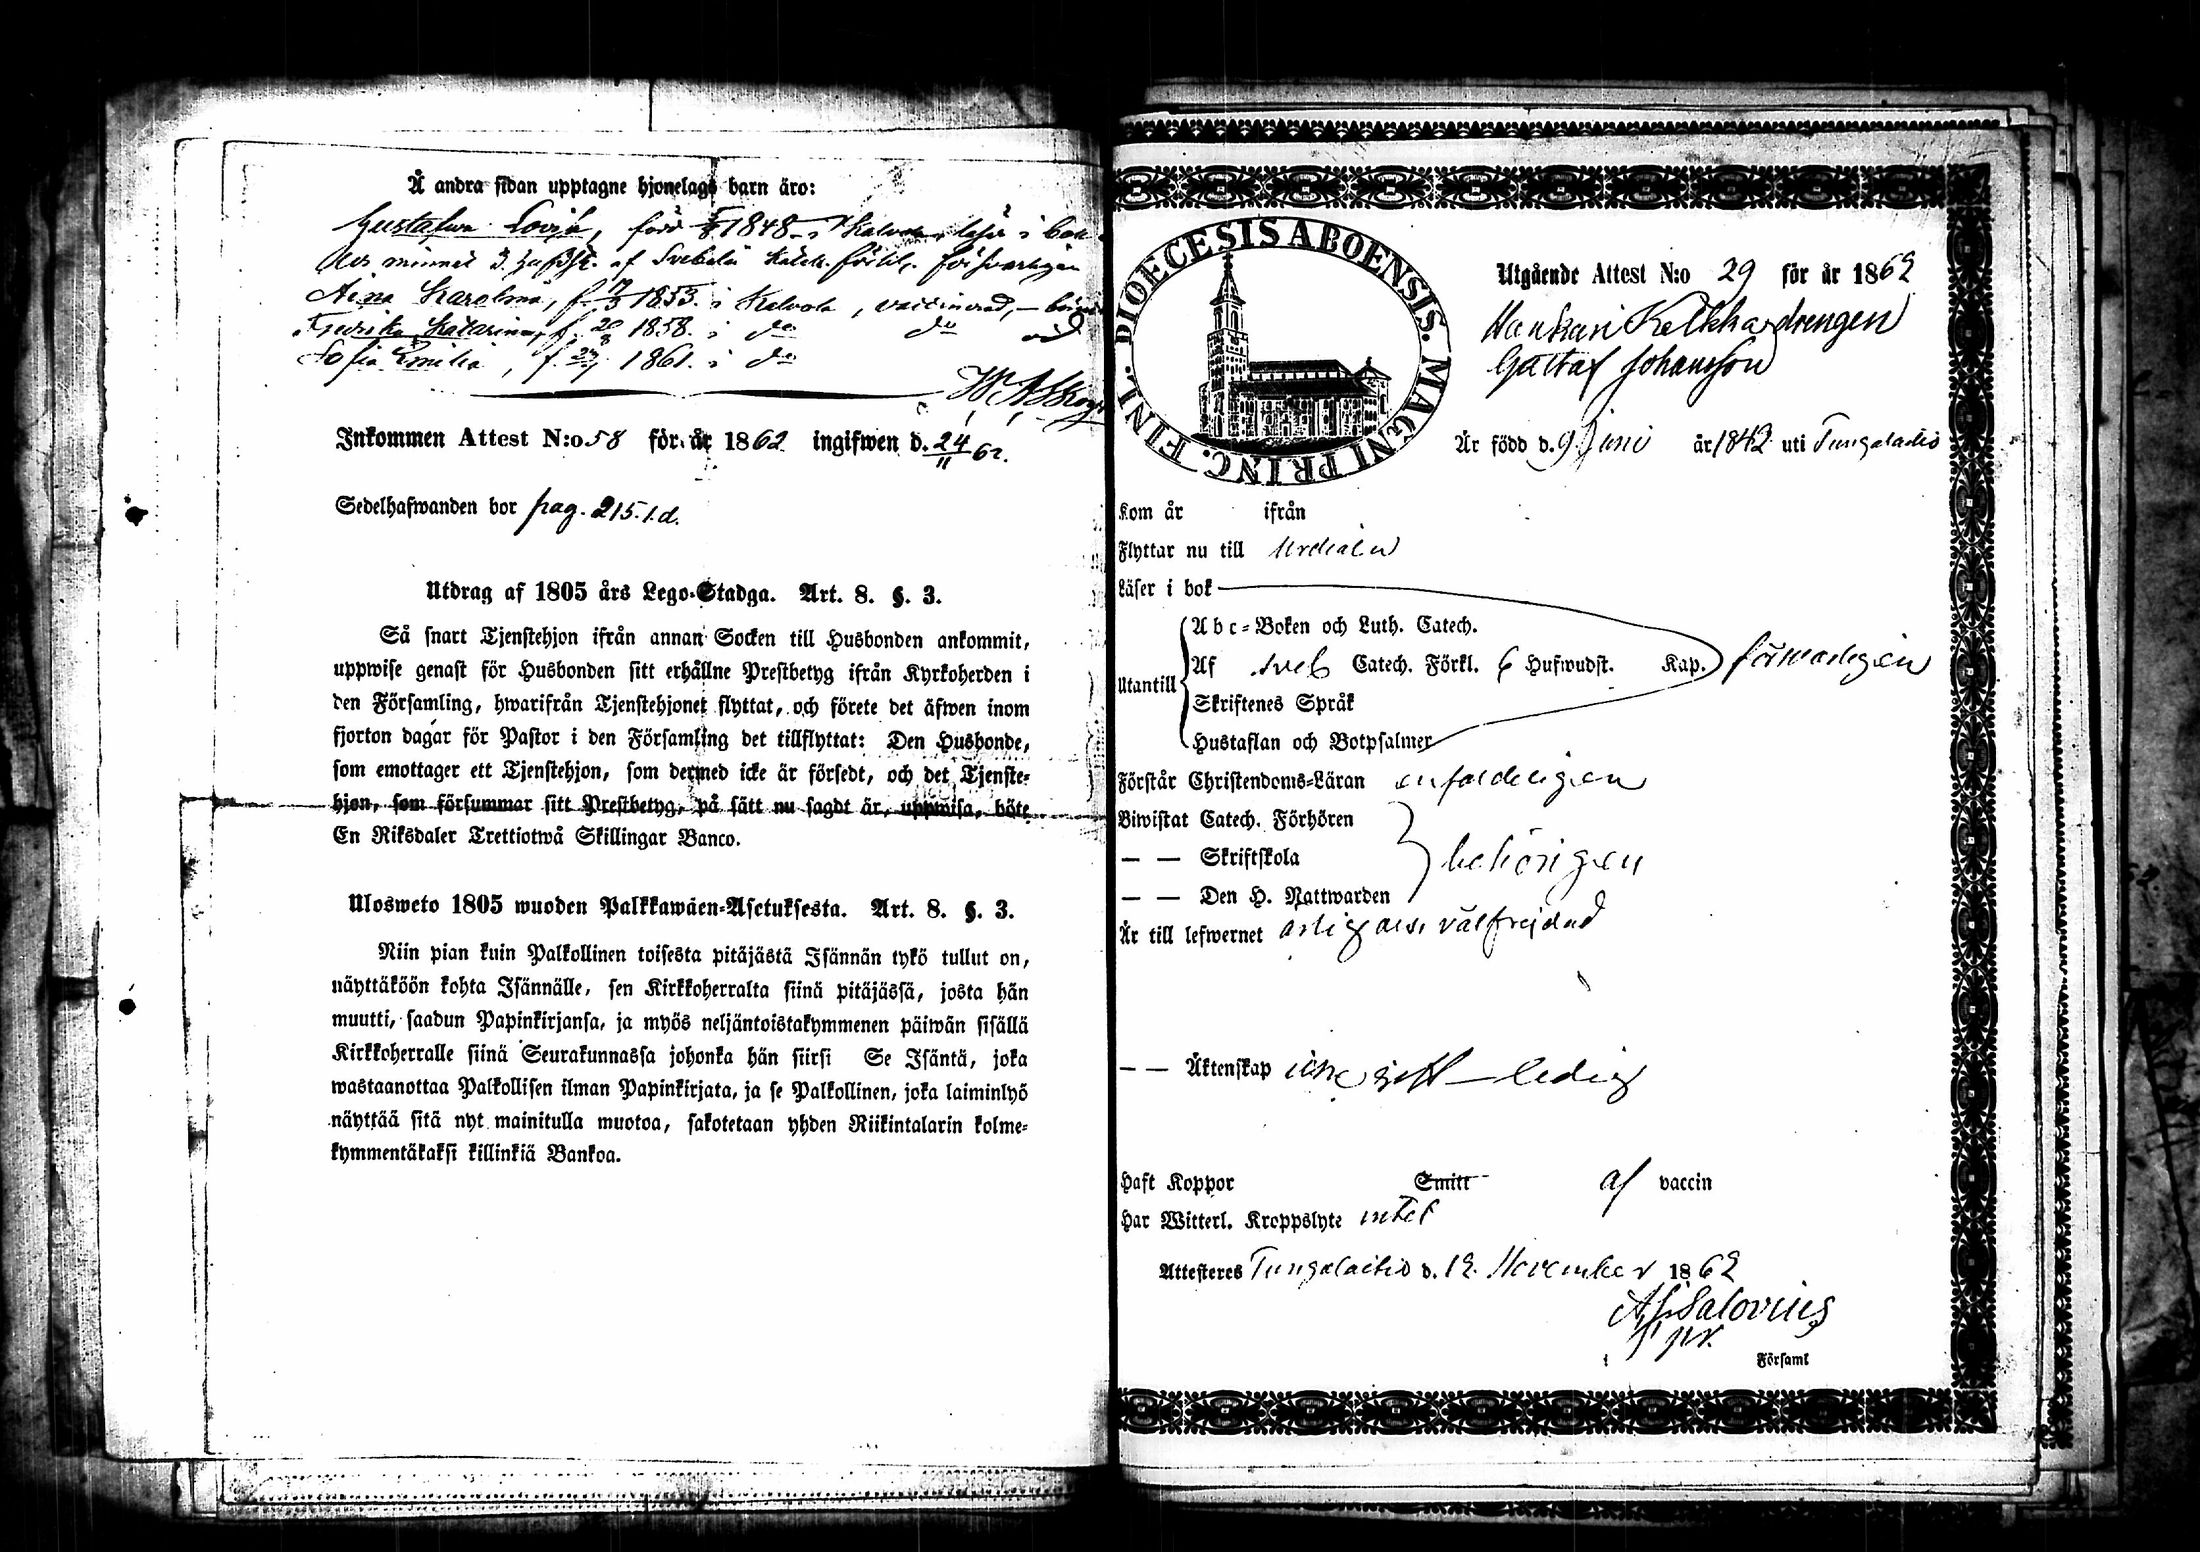 Å andra sidan upptagne hjonelags barn äro:
Gustafva Lovisa, född 1848 i Kalvola, läser i bok
Aina Karolina, f. 1853. i Kalvola, vaccinerad,
Fredrika Katarina, f. 20 1858. i do do
Sofia Emilia, f. 1861. i do
Inkommen Attest N:o 58 för år 1862 ingifwen d. 24/11 62.
Sedelhafwanden bor pag. 215. l.d.
Utdrag af 1805 års Lego-Stadga. Art. 8. §. 3.
Så snart Tjenstehjon ifrån annan Socken till Husbonden ankommit,
uppwise genast för Husbonden sitt erhållne Prestbetyg ifrån Kyrkoherden i
den Församling, hwarifrån Tjenstehjonet flyttat, och förete det äfwen inom
fjorton dagar för Pastor i den Församling det tillflyttat: Den Husbonde,
som emottager ett Tjenstehjon, som dermed icke är försedt, och det Tjenste-
hjon, som försummar sitt Prestbetyg, på sätt nu sagdt är, uppwisa, böte
En Riksdaler Trettiotwå Skillingar Banco.
Ulosweto 1805 wuoden Palkkawäen-Asetuksesta. Art. 8. §. 3.
Niin pian kuin Palkollinen toisesta pitäjästä Isännän tykö tullut on,
näyttäköön kohta Isännälle, sen Kirkkoherralta siinä pitäjässä, josta hän
muutti, saadun Papinkirjansa, ja myös neljäntoistakymmenen päiwän sisällä
Kirkkoherralle siinä Seurakunnassa johonka hän siirsi Se Isäntä, joka
wastaanottaa Palkollisen ilman Papinkirjata, ja se Palkollinen, joka laiminlyö
näyttää sitä nyt mainitulla muotoa, sakotetaan yhden Riikintalarin kolme-
kymmentäkaksi killinkiä Bankoa.
DIOECESIS ABOENSIS. MAGNI PRINC. FINL.
Utgående Attest N:o 29 för år 1862
drengen
Gustaf Johansson
Är född d. 9 Juni år 1842 uti Tungelaitio
Kom år ifrån
Flyttar nu till Urdiala
Läser i bok
Abc-Boken och Luth. Catech.
Utantill Af Sveb Catech. Förkl. 6 Hufwudst. Kap. försvarligen
Skriftenes Språk
Hustaflan och Botpsalmer
Förstår Christendoms-Läran enfaldeligen
Biwistat Catech. Förhören
— — Skriftskola behörigen
— — Den H. Nattwarden
Är till lefwernet ärlig och välfrejdad
— — Äktenskap icke gift – ledig
Haft Koppor Smitt af vaccin
Har Witterl. Kroppslyte intet
Attesteres Tungelaitio d. 12. November 1862
Salovius
Församl